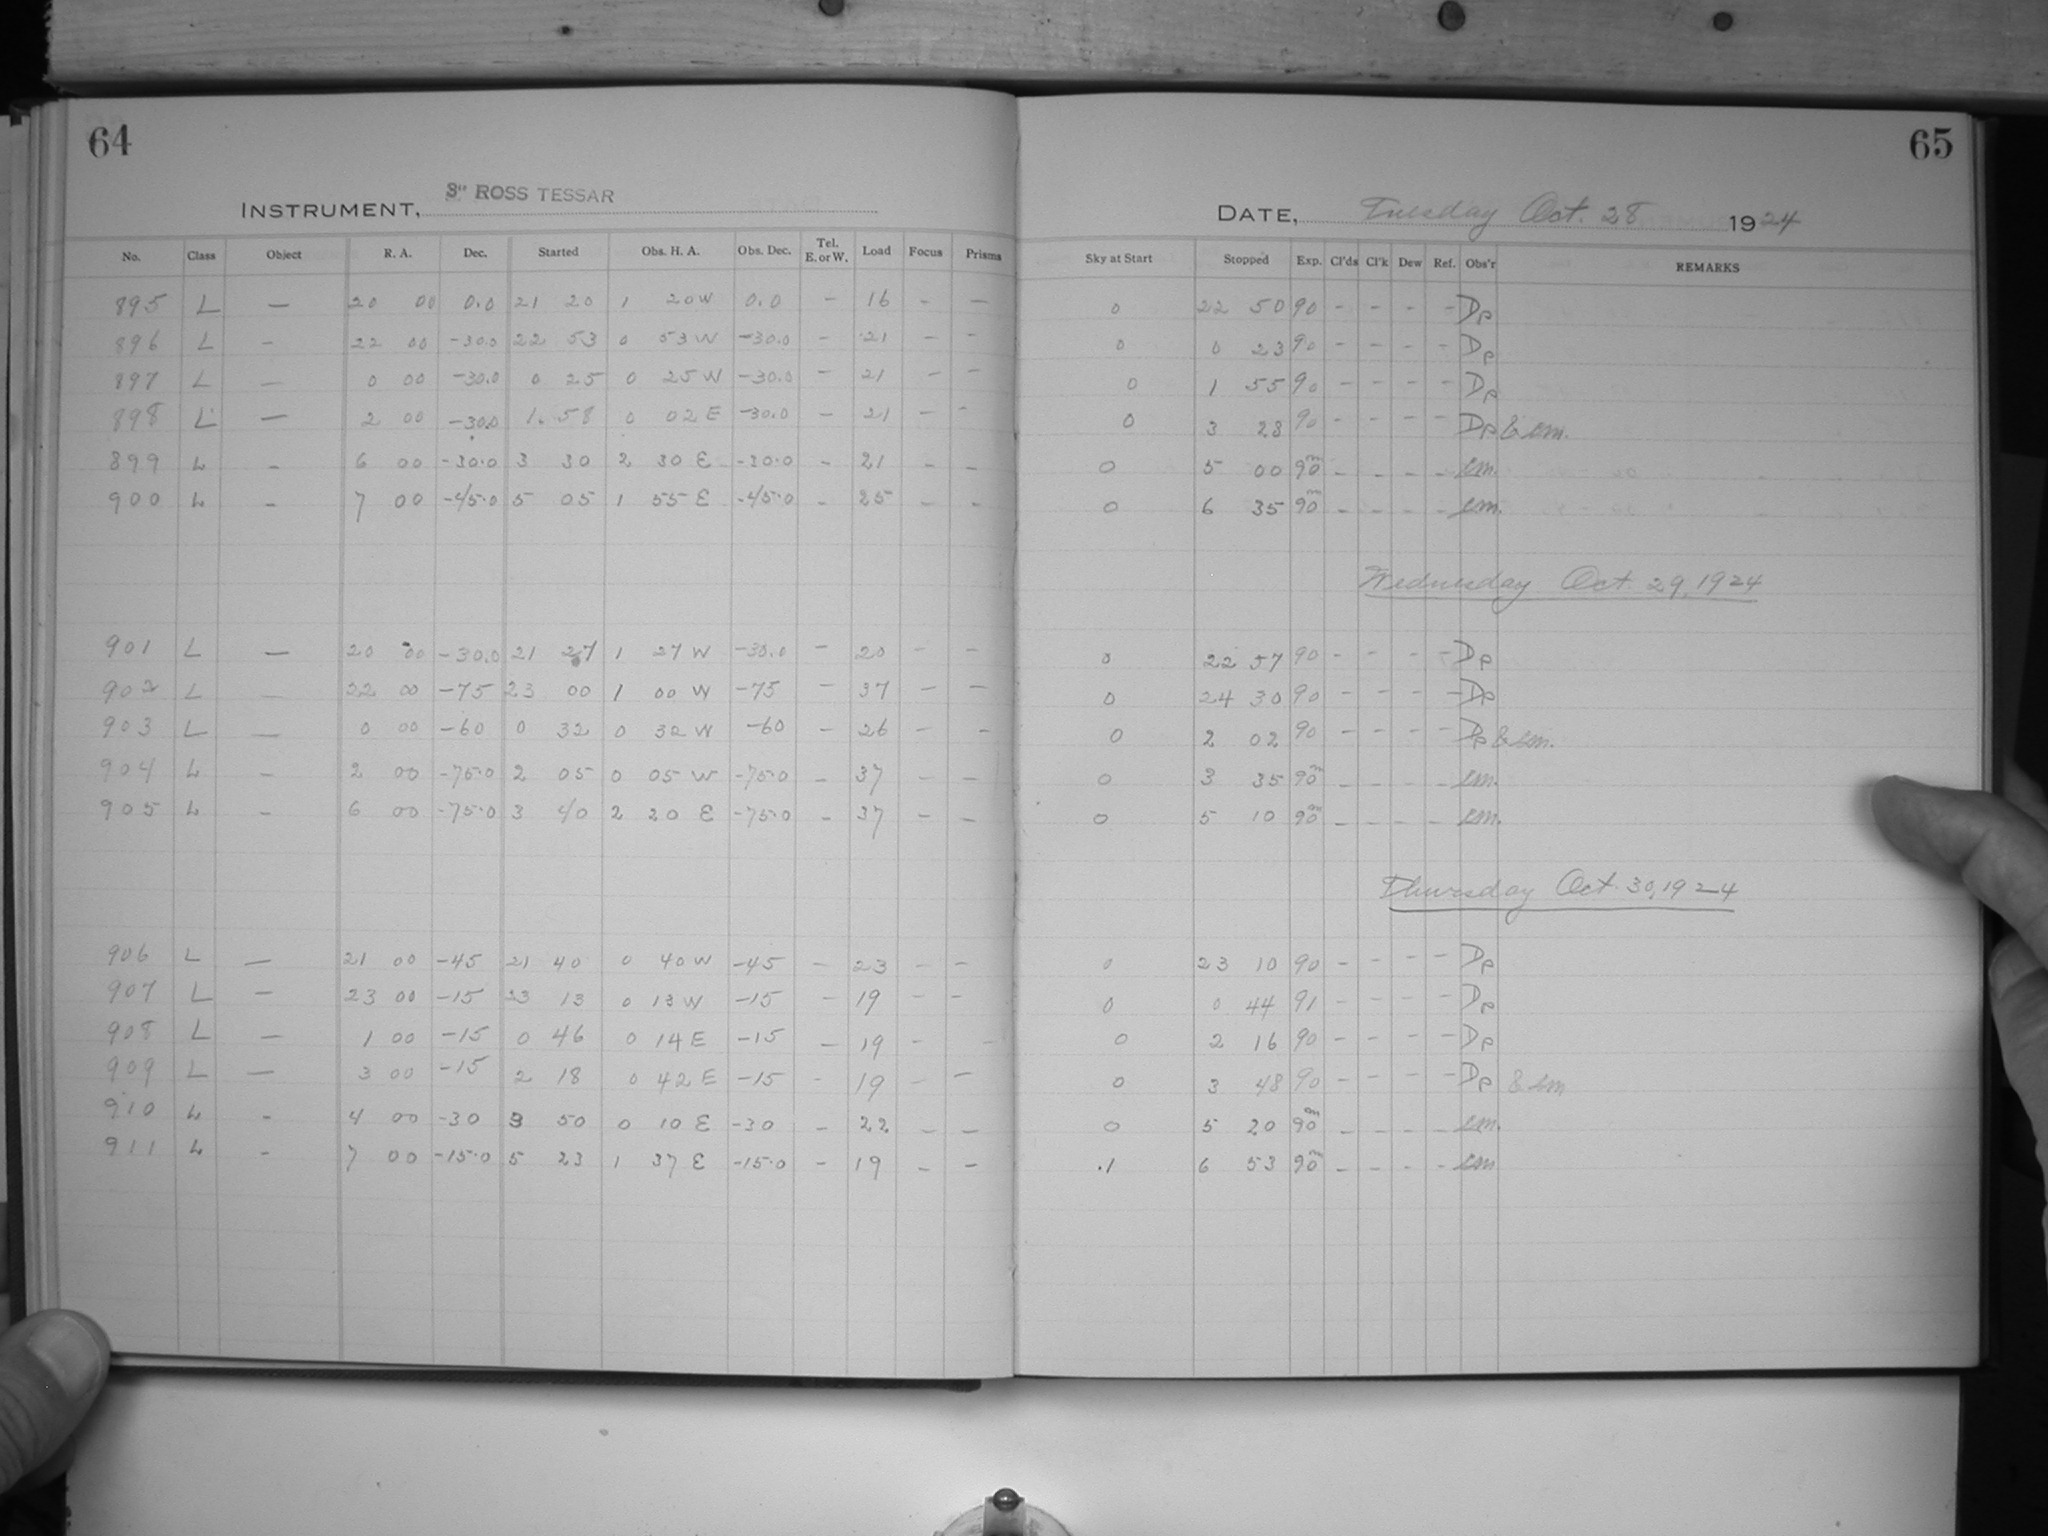 64
INSTRUMENT, 3" ROSS TESSAR
No. Class Object R. A. Dec. Started Obs. H. A. Obs. Dec. Tel. E. or W. Load Focus Prisms
895 L — 20 00 0.0 21 20 1 20 W 0.0 - 16 - -
896 L - 22 00 -30.0 22 53 0 53 W -30.0 - 21 - -
897 L - 0 00 -30.0 0 25 0 25 W -30.0 - 21 - -
898 L — 2 00 -30.0 1 58 0 02 E -30.0 - 21 - -
899 L - 6 00 -30.0 3 30 2 30 E -30.0 - 21 - -
900 L - 7 00 -45.0 5 05 1 55 E -45.0 - 25 - -
901 L — 20 00 -30.0 21 27 1 27 W -30.0 - 20 - -
902 L — 22 00 -75 23 00 1 00 W -75 - 37 - -
903 L — 0 00 -60 0 32 0 32 W -60 - 26 - -
904 L - 2 00 -75.0 2 05 0 05 W -75.0 - 37 - -
905 L - 6 00 -75.0 3 40 2 20 E -75.0 - 37 - -
906 L — 21 00 -45 21 40 0 40 W -45 - 23 - -
907 L - 23 00 -15 23 13 0 13 W -15 - 19 - -
908 L — 1 00 -15 0 46 0 14 E -15 - 19 - -
909 L — 3 00 -15 2 18 0 42 E -15 - 19 - -
910 L - 4 00 -30 3 50 0 10 E -30 - 22 - -
911 L - 7 00 -15.0 5 23 1 37 E -15.0 - 19 - -
65
DATE, Tuesday Oct. 28 1924
Sky at Start Stopped Exp. Cl'ds Cl'k Dew Ref. Obs'r REMARKS
0 22 50 90 - - - - Dp
0 0 23 90 - - - - Dp
0 1 55 90 - - - - Dp
0 3 28 90 - - - - Dp & em.
0 5 00 90m - - - - em.
0 6 35 90m - - - - em.
Wednesday Oct. 29, 1924
0 22 57 90 - - - - Dp
0 24 30 90 - - - - Dp
0 2 02 90 - - - - Dp & em.
0 3 35 90m - - - - em.
0 5 10 90m - - - - em.
Thursday Oct. 30, 1924
0 23 10 90 - - - - Dp
0 0 44 91 - - - - Dp
0 2 16 90 - - - - Dp
0 3 48 90 - - - - Dp & em
0 5 20 90m - - - - em.
.1 6 53 90m - - - - em